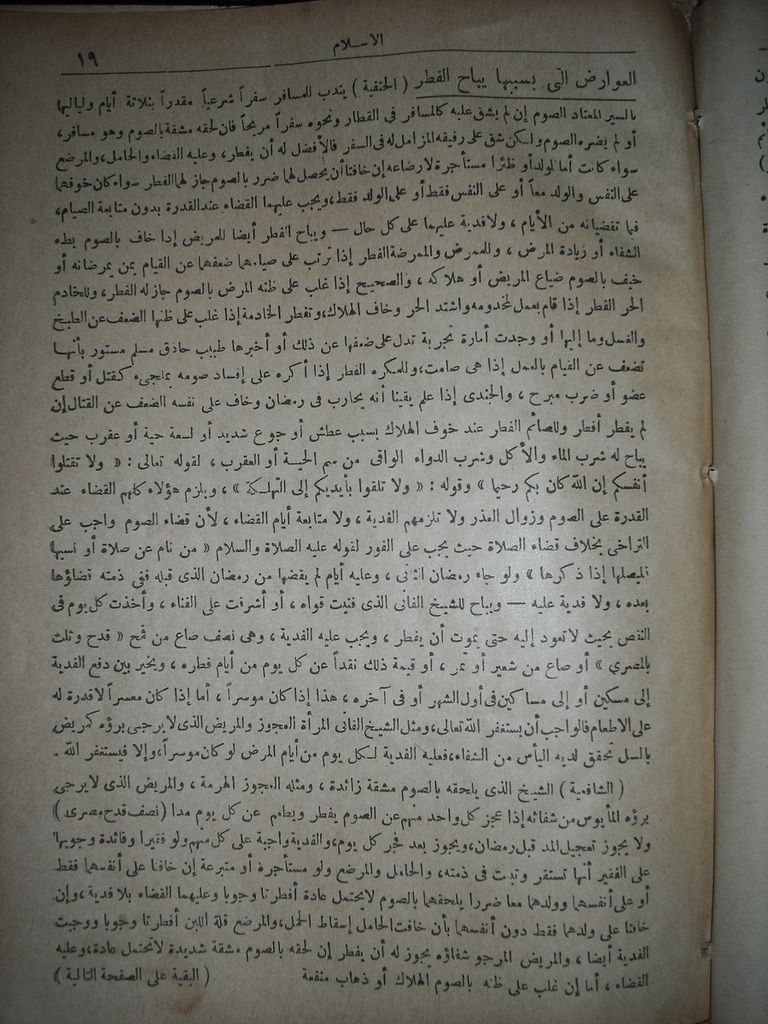 الاسلام
١٩
العوارض التى بسببها يباح الفطر ( الحنفية ) يندب للمسافر سفراً شرعياً مقدراً بثلاثة أيام ولياليها
بالسير المعتاد الصوم إن لم يشق عليه كالمسافر فى القطار ونحوه سفراً مريحاً فان لحقه مشقة بالصوم وهو مسافر،
أو لم يضره الصوم ولكن شق على رفيقه المزامل له فى السفر فالأفضل له أن يفطر، وعليه القضاء والحامل، والمرضع
سواء كانت أما للولد أو ظئرا مستأجرة لارضاعه إن خافتا أن يحصل لهما ضرر بالصوم جاز لهما الفطر سواء كان خوفهما
على النفس والولد معاً أو على النفس فقط أو على الولد فقط، ويجب عليهما القضاء عند القدرة بدون متابعة الصيام،
فيما تقضيانه من الأيام ، ولا فدية عليهما على كل حال — ويباح الفطر أيضا للمريض إذا خاف بالصوم بطء
الشفاء أو زيادة المرض ، وللممرض والممرضة الفطر إذا ترتب على صيامهما ضعفهما عن القيام بمن يمرضانه أو
خيف بالصوم ضياع المريض أو هلاكه ، والصحيح إذا غلب على ظنه المرض بالصوم جاز له الفطر، وللخادم
الحر الفطر إذا قام بعمل لمخدومه واشتد الحر وخاف الهلاك، وتفطر الخادمة إذا غلب على ظنها الضعف عن الطبخ
والغسل وما إليها أو وجدت أمارة تجربة تدل على ضعفها عن ذلك أو أخبرها طبيب حاذق مسلم مستور بأنها
تضعف عن القيام بالعمل إذا هى صامت، وللمكره الفطر إذا أكره على إفساد صومه بملجىء كقتل أو قطع
عضو أو ضرب مبرح ، والجندى إذا علم يقينا أنه يحارب فى رمضان وخاف على نفسه الضعف عن القتال إن
لم يفطر أفطر وللصائم الفطر عند خوف الهلاك بسبب عطش أو جوع شديد أو لسعة حية أو عقرب حيث
يباح له شرب الماء والأكل وشرب الدواء الواقى من سم الحية أو العقرب ، لقوله تعالى : « ولا تقتلوا
أنفسكم إن الله كان بكم رحيما » وقوله : « ولا تلقوا بأيديكم إلى التهلكة » ، ويلزم هؤلاء كلهم القضاء عند
القدرة على الصوم وزوال العذر ولا تلزمهم الفدية ، ولا متابعة أيام القضاء ، لأن قضاء الصوم واجب على
التراخى بخلاف قضاء الصلاة حيث يجب على الفور لقوله عليه الصلاة والسلام « من نام عن صلاة أو نسيها
فليصلها إذا ذكرها » ولو جاء رمضان الثانى ، وعليه أيام لم يقضها من رمضان الذى قبله ففى ذمته قضاؤها
بعده ، ولا فدية عليه — ويباح للشيخ الفانى الذى فنيت قواه ، أو أشرفت على الفناء ، وأخذت كل يوم فى
النقص بحيث لا تعود إليه حتى يموت أن يفطر ، ويجب عليه الفدية ، وهى نصف صاع من قمح « قدح وثلث
بالمصرى » أو صاع من شعير أو تمر ، أو قيمة ذلك نقداً عن كل يوم من أيام فطره ، ويخير بين دفع الفدية
إلى مسكين أو إلى مساكين فى أول الشهر أو فى آخره ، هذا إذا كان موسراً ، أما إذا كان معسراً لا قدرة له
على الاطعام فالواجب أن يستغفر الله تعالى، ومثل الشيخ الفانى المرأة العجوز والمريض الذى لا يرجى برؤه كمريض
بالسل تحقق لديه اليأس من الشفاء، فعليه الفدية لكل يوم من أيام المرض لو كان موسراً، وإلا فيستغفر الله .
( الشافعية ) الشيخ الذى يلحقه بالصوم مشقة زائدة ، ومثله العجوز الهرمة ، والمريض الذى لا يرجى
برؤه المأيوس من شفائه إذا عجز كل واحد منهم عن الصوم يفطر ويطعم عن كل يوم مدا ( نصف قدح مصرى )
ولا يجوز تعجيل المد قبل رمضان، ويجوز بعد فجر كل يوم، والفدية واجبة على كل منهم ولو فقيرا وفائدة وجوبها
على الفقير أنها تستقر وتثبت فى ذمته، والحامل والمرضع ولو مستأجرة أو متبرعة إن خافتا على أنفسهما فقط
أو على أنفسهما وولدهما معا ضررا يلحقهما بالصوم لا يحتمل عادة أفطرتا وجوبا وعليهما القضاء بلا فدية ، وإن
خافتا على ولدهما فقط دون أنفسهما بأن خافت الحامل إسقاط الحمل، والمرضع قلة اللبن أفطرتا وجوبا ووجبت
الفدية أيضا ، والمريض المرجو شفاؤه يجوز له أن يفطر إن لحقه بالصوم مشقة شديدة لا تحتمل عادة، وعليه
القضاء ، أما إن غلب على ظنه بالصوم الهلاك أو ذهاب منفعة ( البقية على الصفحة التالية )